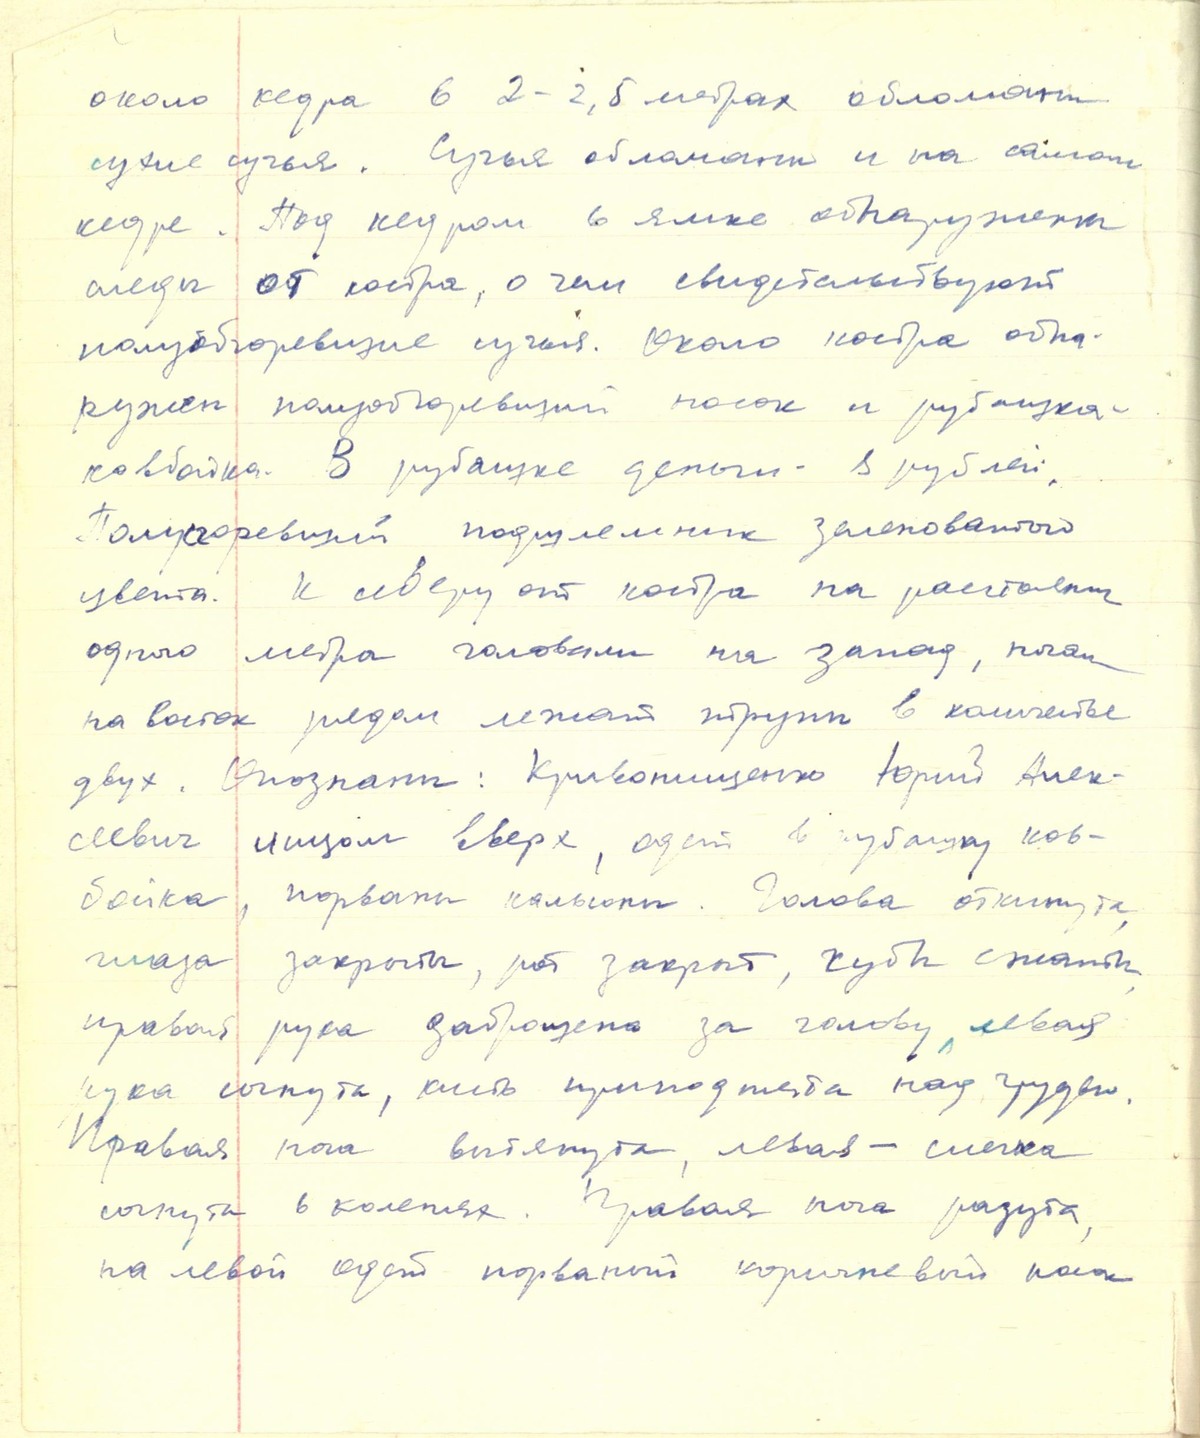 около кедра в 2-2,5 метрах обломаны
сухие сучья. Сучья обломаны и на самом
кедре. Под кедром в ямке обнаружены
следы от костра, о чем свидетельствуют
полуобгоревшие сучья. Около костра обна-
ружен полуобгоревший носок и рубашка-
ковбойка. В рубашке деньги - 8 рублей.
Полусгоревший подшлемник зеленоватого
цвета. К северу от костра на расстоянии
одного метра головами на запад, ногами
на восток рядом лежат трупы в количестве
двух. Опознаны: Кривонищенко Юрий Алек-
сеевич лицом вверх, одет в рубашку ков-
бойка, порваны кальсоны. Голова откинута,
глаза закрыты, рот закрыт, губы сжаты,
правая рука заброшена за голову, левая
рука согнута, кисть приподнята над грудью.
Правая нога вытянута, левая - слегка
согнута в коленях. Правая нога разута,
на левой одет порваный коричневый носок